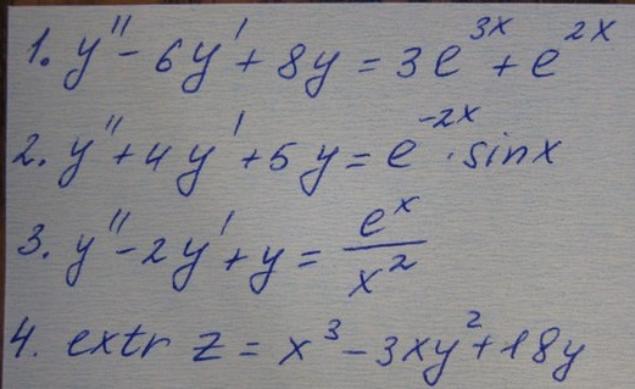 1. y'' - 6y' + 8y = 3e^{3x} + e^{2x}
2. y'' + 4y' + 5y = e^{-2x} · sinx
3. y'' - 2y' + y = \frac{e^x}{x^2}
4. extr z = x^3 - 3xy^2 + 18y